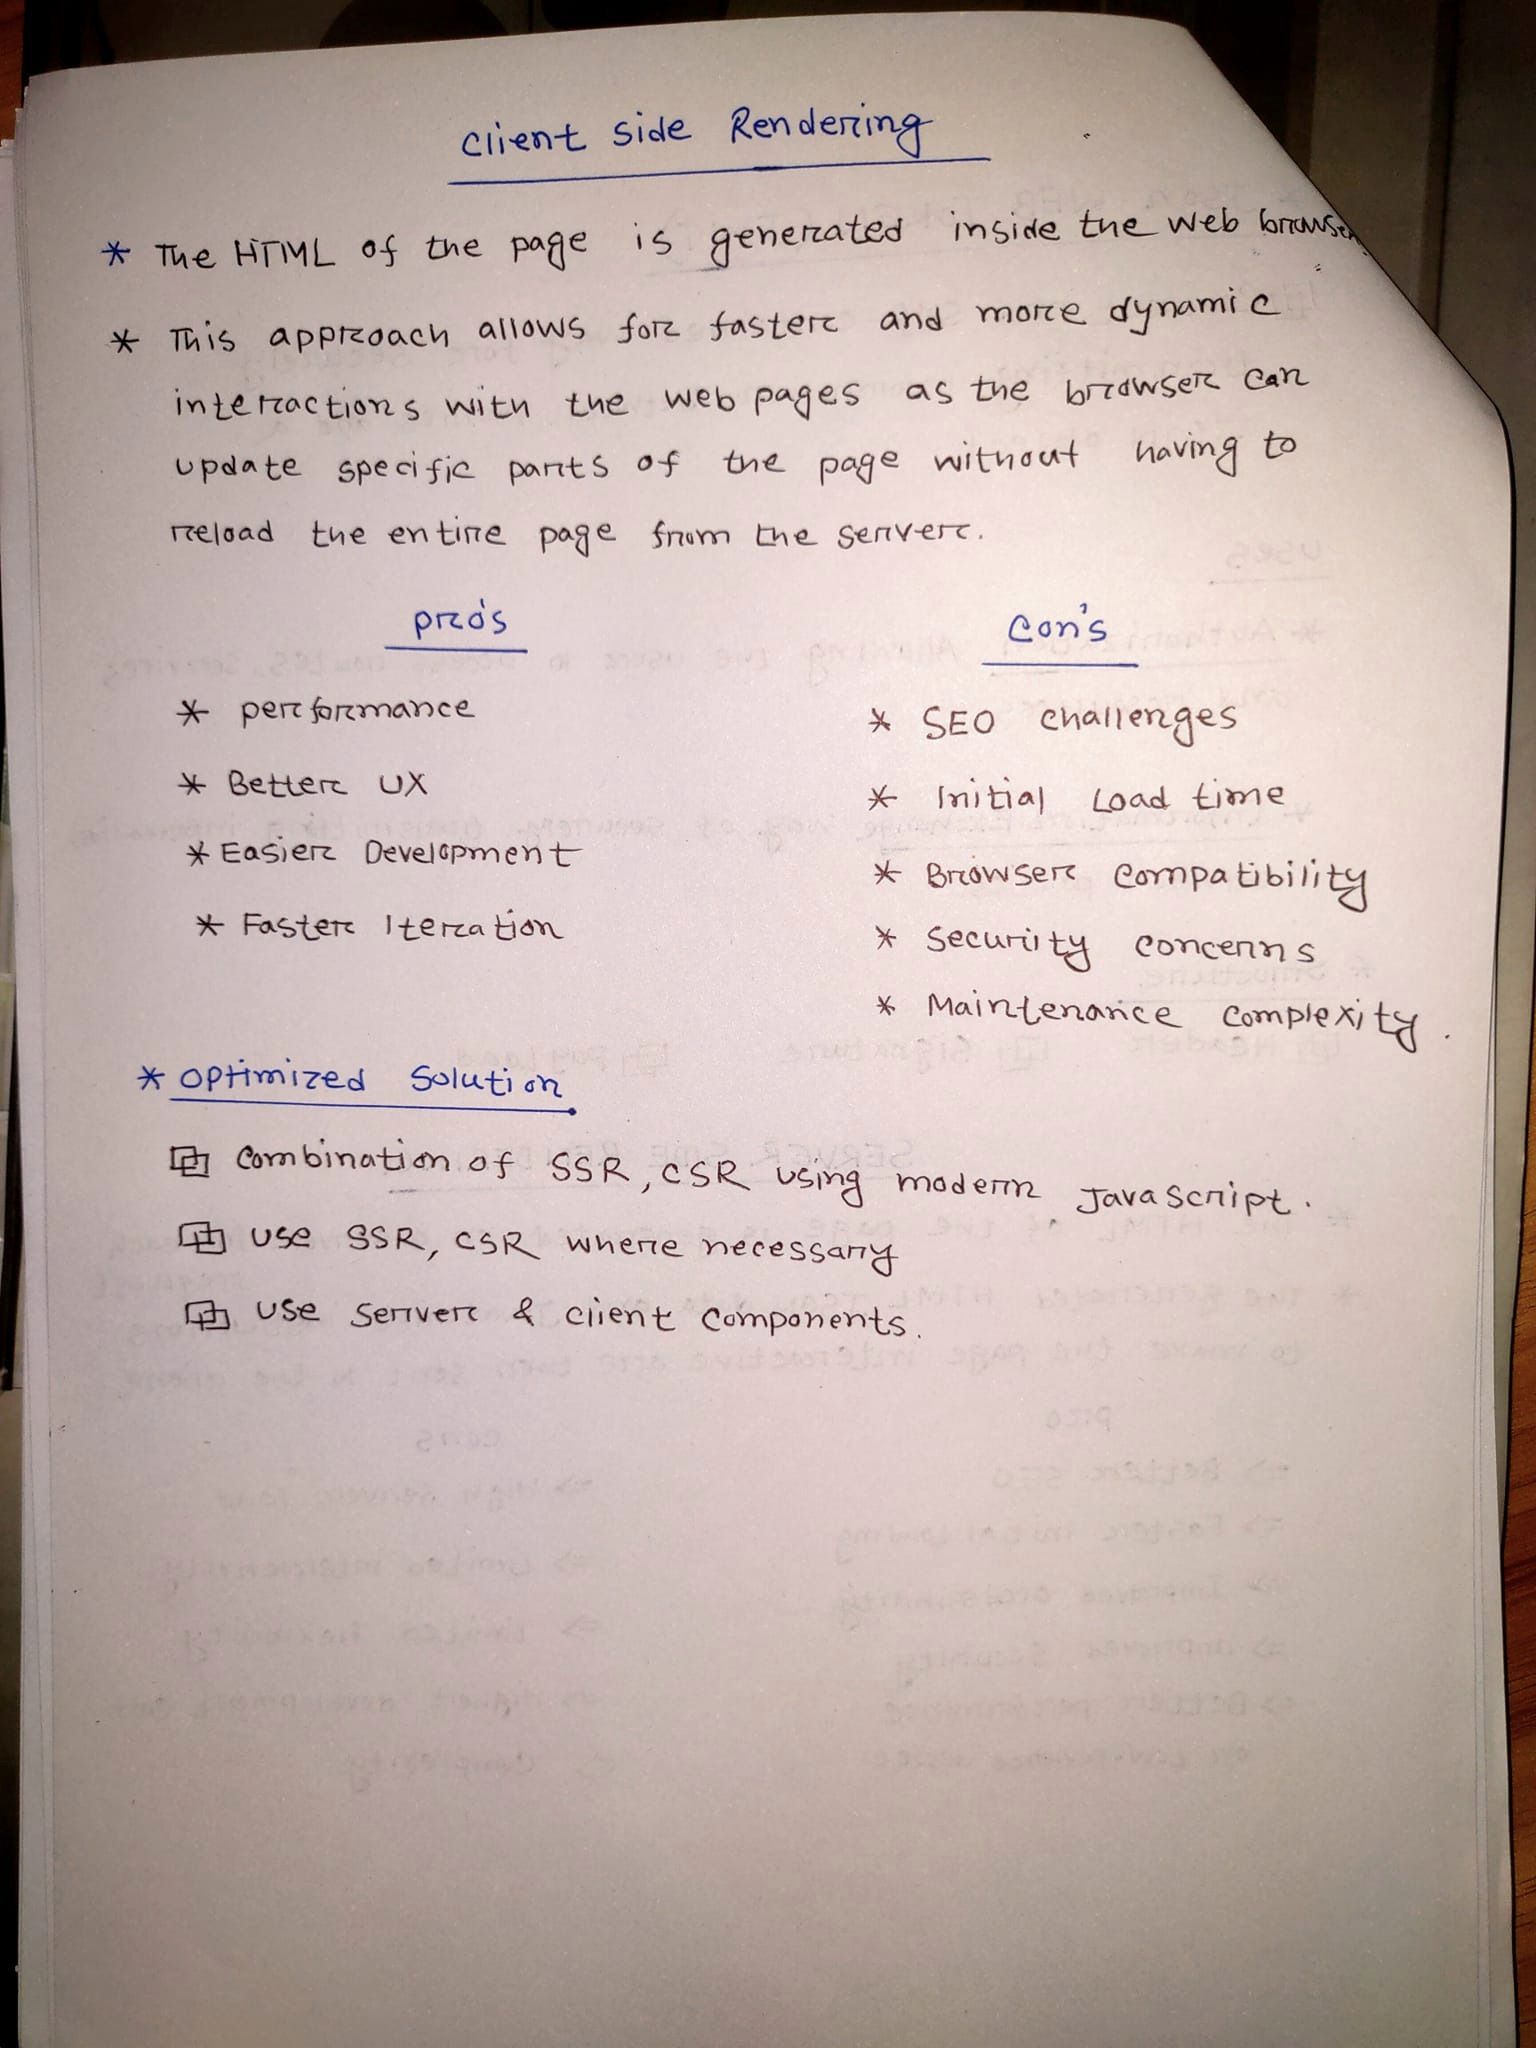 Client Side Rendering
* The HTML of the page is generated inside the web browser
* This approach allows for faster and more dynamic
interactions with the web pages as the browser can
update specific parts of the page without having to
reload the entire page from the server.
pro's
con's
* performance
* SEO challenges
* Better UX
* Initial Load time
* Easier Development
* Browser compatibility
* Faster Iteration
* Security concerns
* Maintenance complexity.
* Optimized Solution
Combination of SSR, CSR using modern Javascript.
use SSR, CSR where necessary
use server & client components.